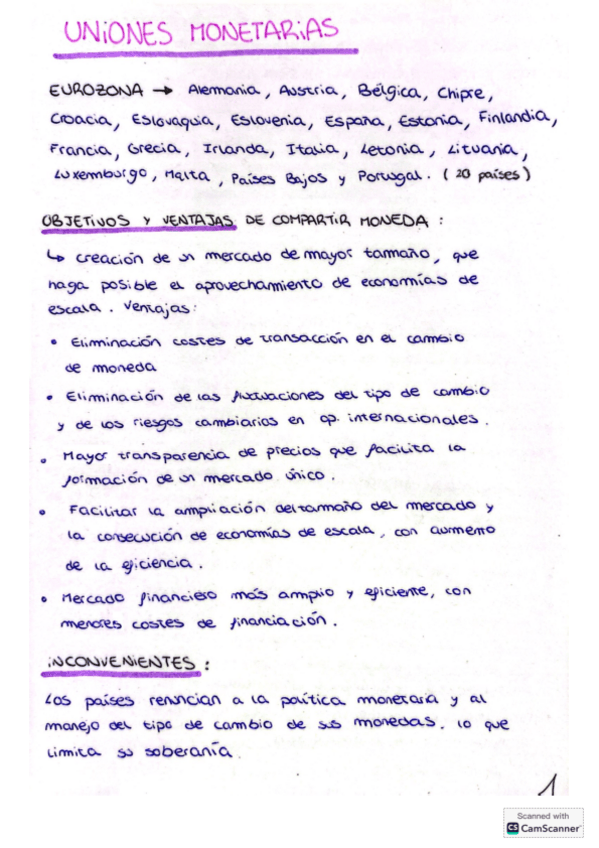 UNIONES MONETARIAS
EUROZONA → Alemania, Austria, Bélgica, Chipre,
Croacia, Eslovaquia, Eslovenia, España, Estonia, Finlandia,
Francia, Grecia, Irlanda, Italia, Letonia, Lituania,
Luxemburgo, Malta, Países Bajos y Portugal. (20 países)
OBJETIVOS Y VENTAJAS DE COMPARTIR MONEDA:
↳ Creación de un mercado de mayor tamaño, que
haga posible el aprovechamiento de economías de
escala. Ventajas:
• Eliminación costes de transacción en el cambio
de moneda
• Eliminación de las fluctuaciones del tipo de cambio
y de los riesgos cambiarios en op. internacionales.
• Mayor transparencia de precios que facilita la
formación de un mercado único.
• Facilitar la ampliación del tamaño del mercado y
la consecución de economías de escala, con aumento
de la eficiencia.
• Mercado financiero más amplio y eficiente, con
menores costes de financiación.
INCONVENIENTES:
Los países renuncian a la política monetaria y al
manejo del tipo de cambio de sus monedas, lo que
limita su soberanía.
1
Scanned with
CS CamScanner